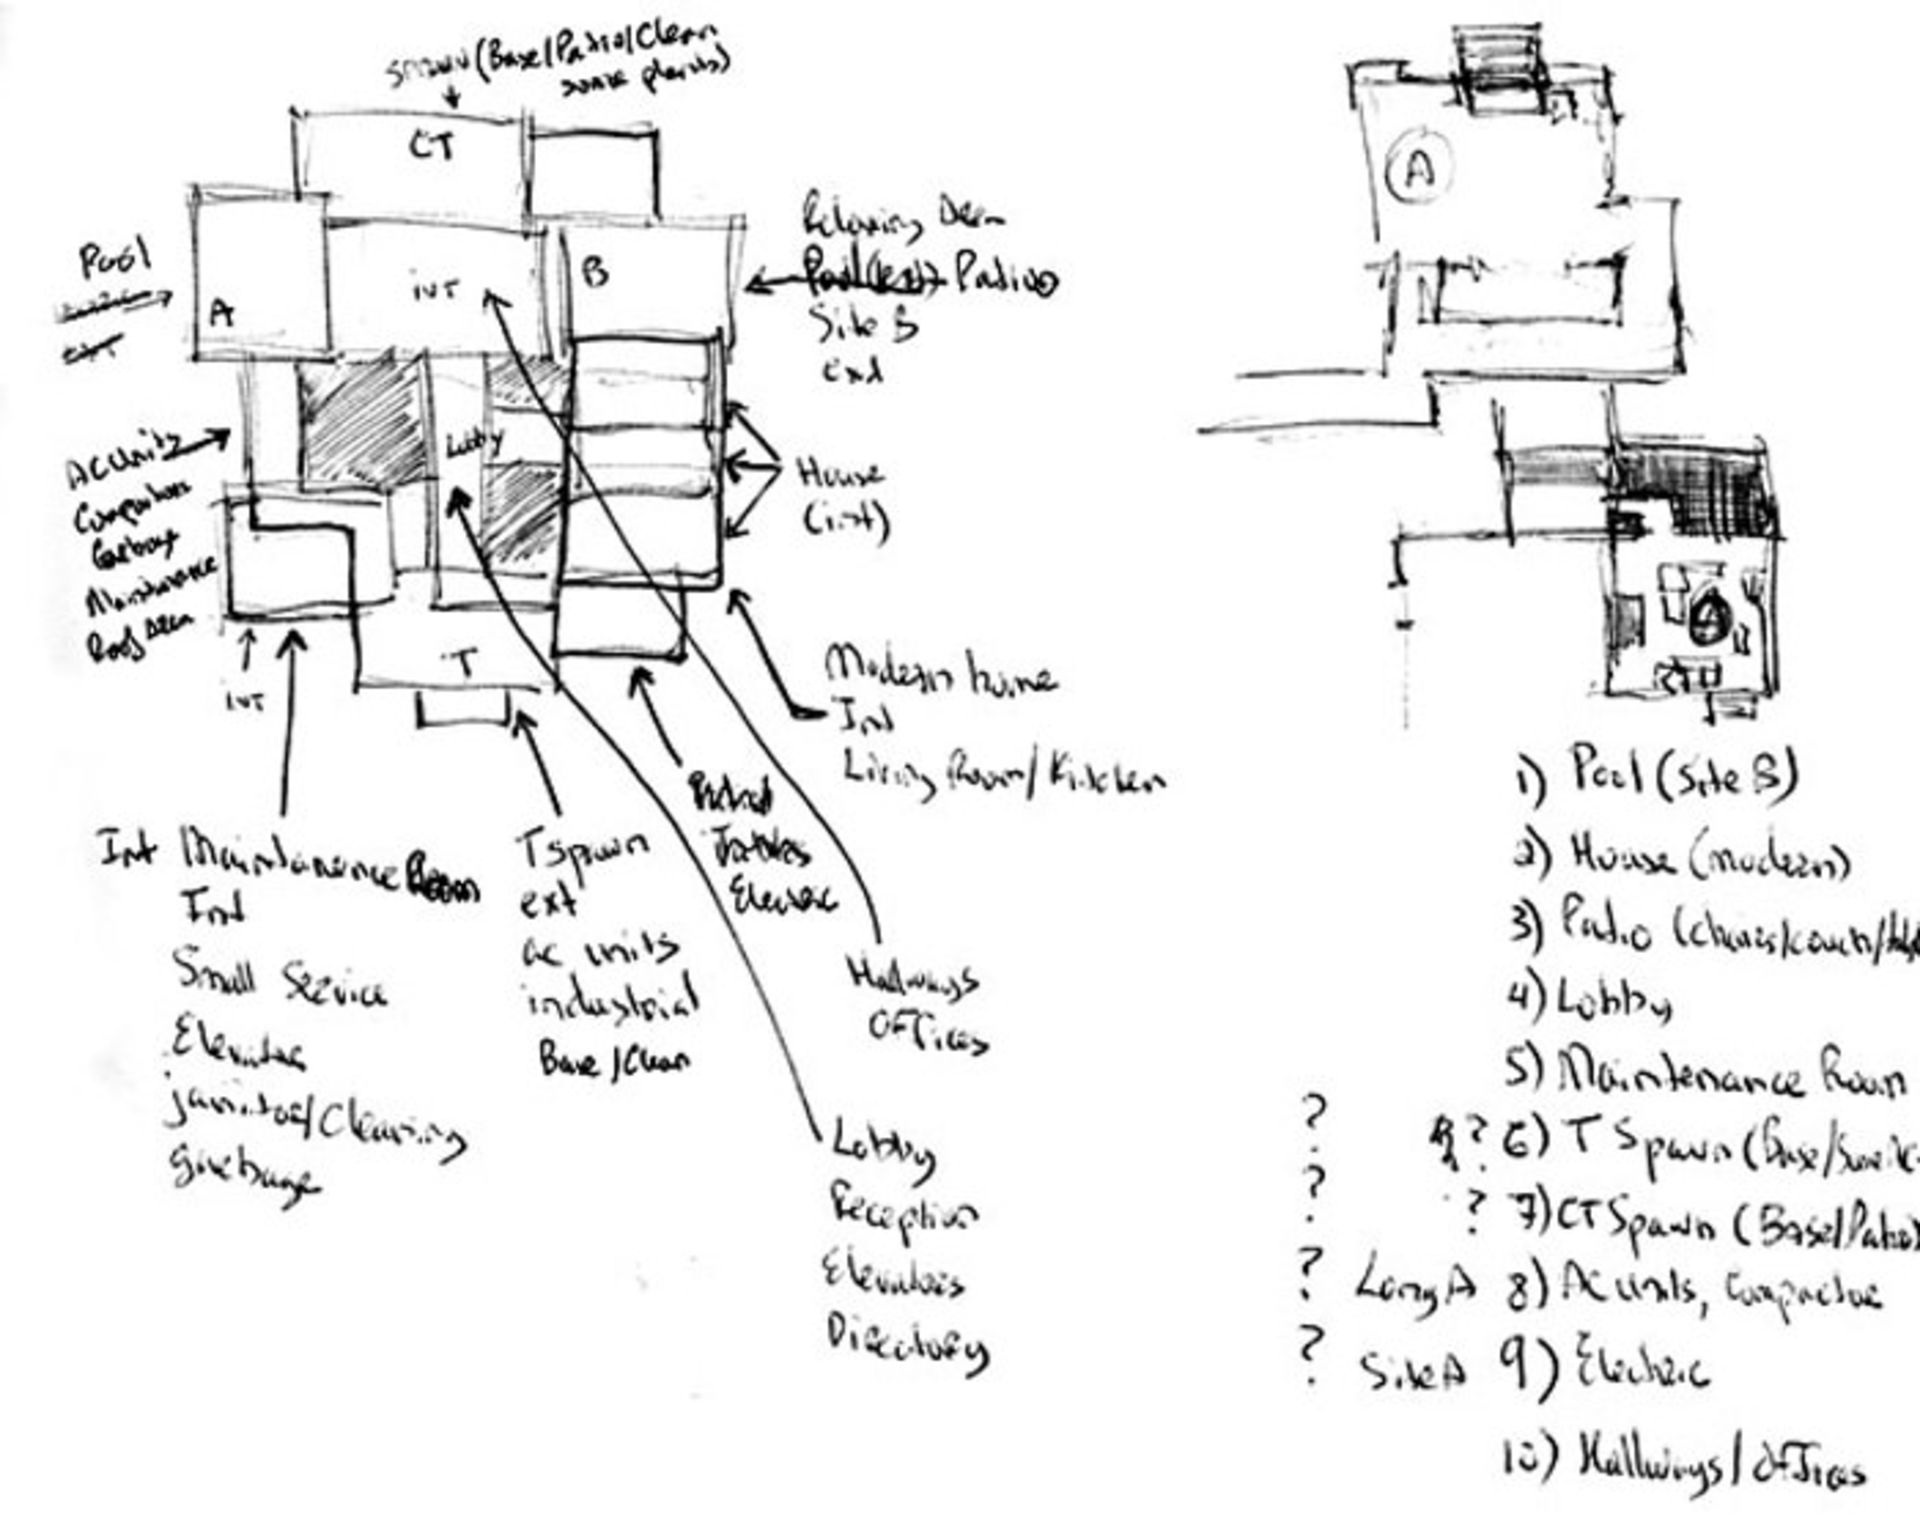 SPAWN (Base/Patio/Clean
some plants)
CT
Pool
A
INT
B
Relaxing Area
Patio
Site B
ext
AC Units
Compactor
Garbage
Maintenance
Roof Area
Lobby
House
(int)
INT
T
Modern home
Int
Living Room/Kitchen
Int Maintanance Room
Int
Small Service
Elevator
janitor/Cleaning
garbage
T spawn
ext
ac units
industrial
Base/Clean
Electric
Hallways
OFFices
Lobby
Reception
Elevators
Directory
A
A
1) Pool (Site B)
2) House (modern)
3) Patio (chairs/couch/
4) Lobby
5) Maintenance Room
? ? 6) T Spawn (Base/
? ? 7) CT Spawn (Base/Patio)
? Long A 8) AC units, Compactor
? Site A 9) Electric
10) Hallways/OFFices